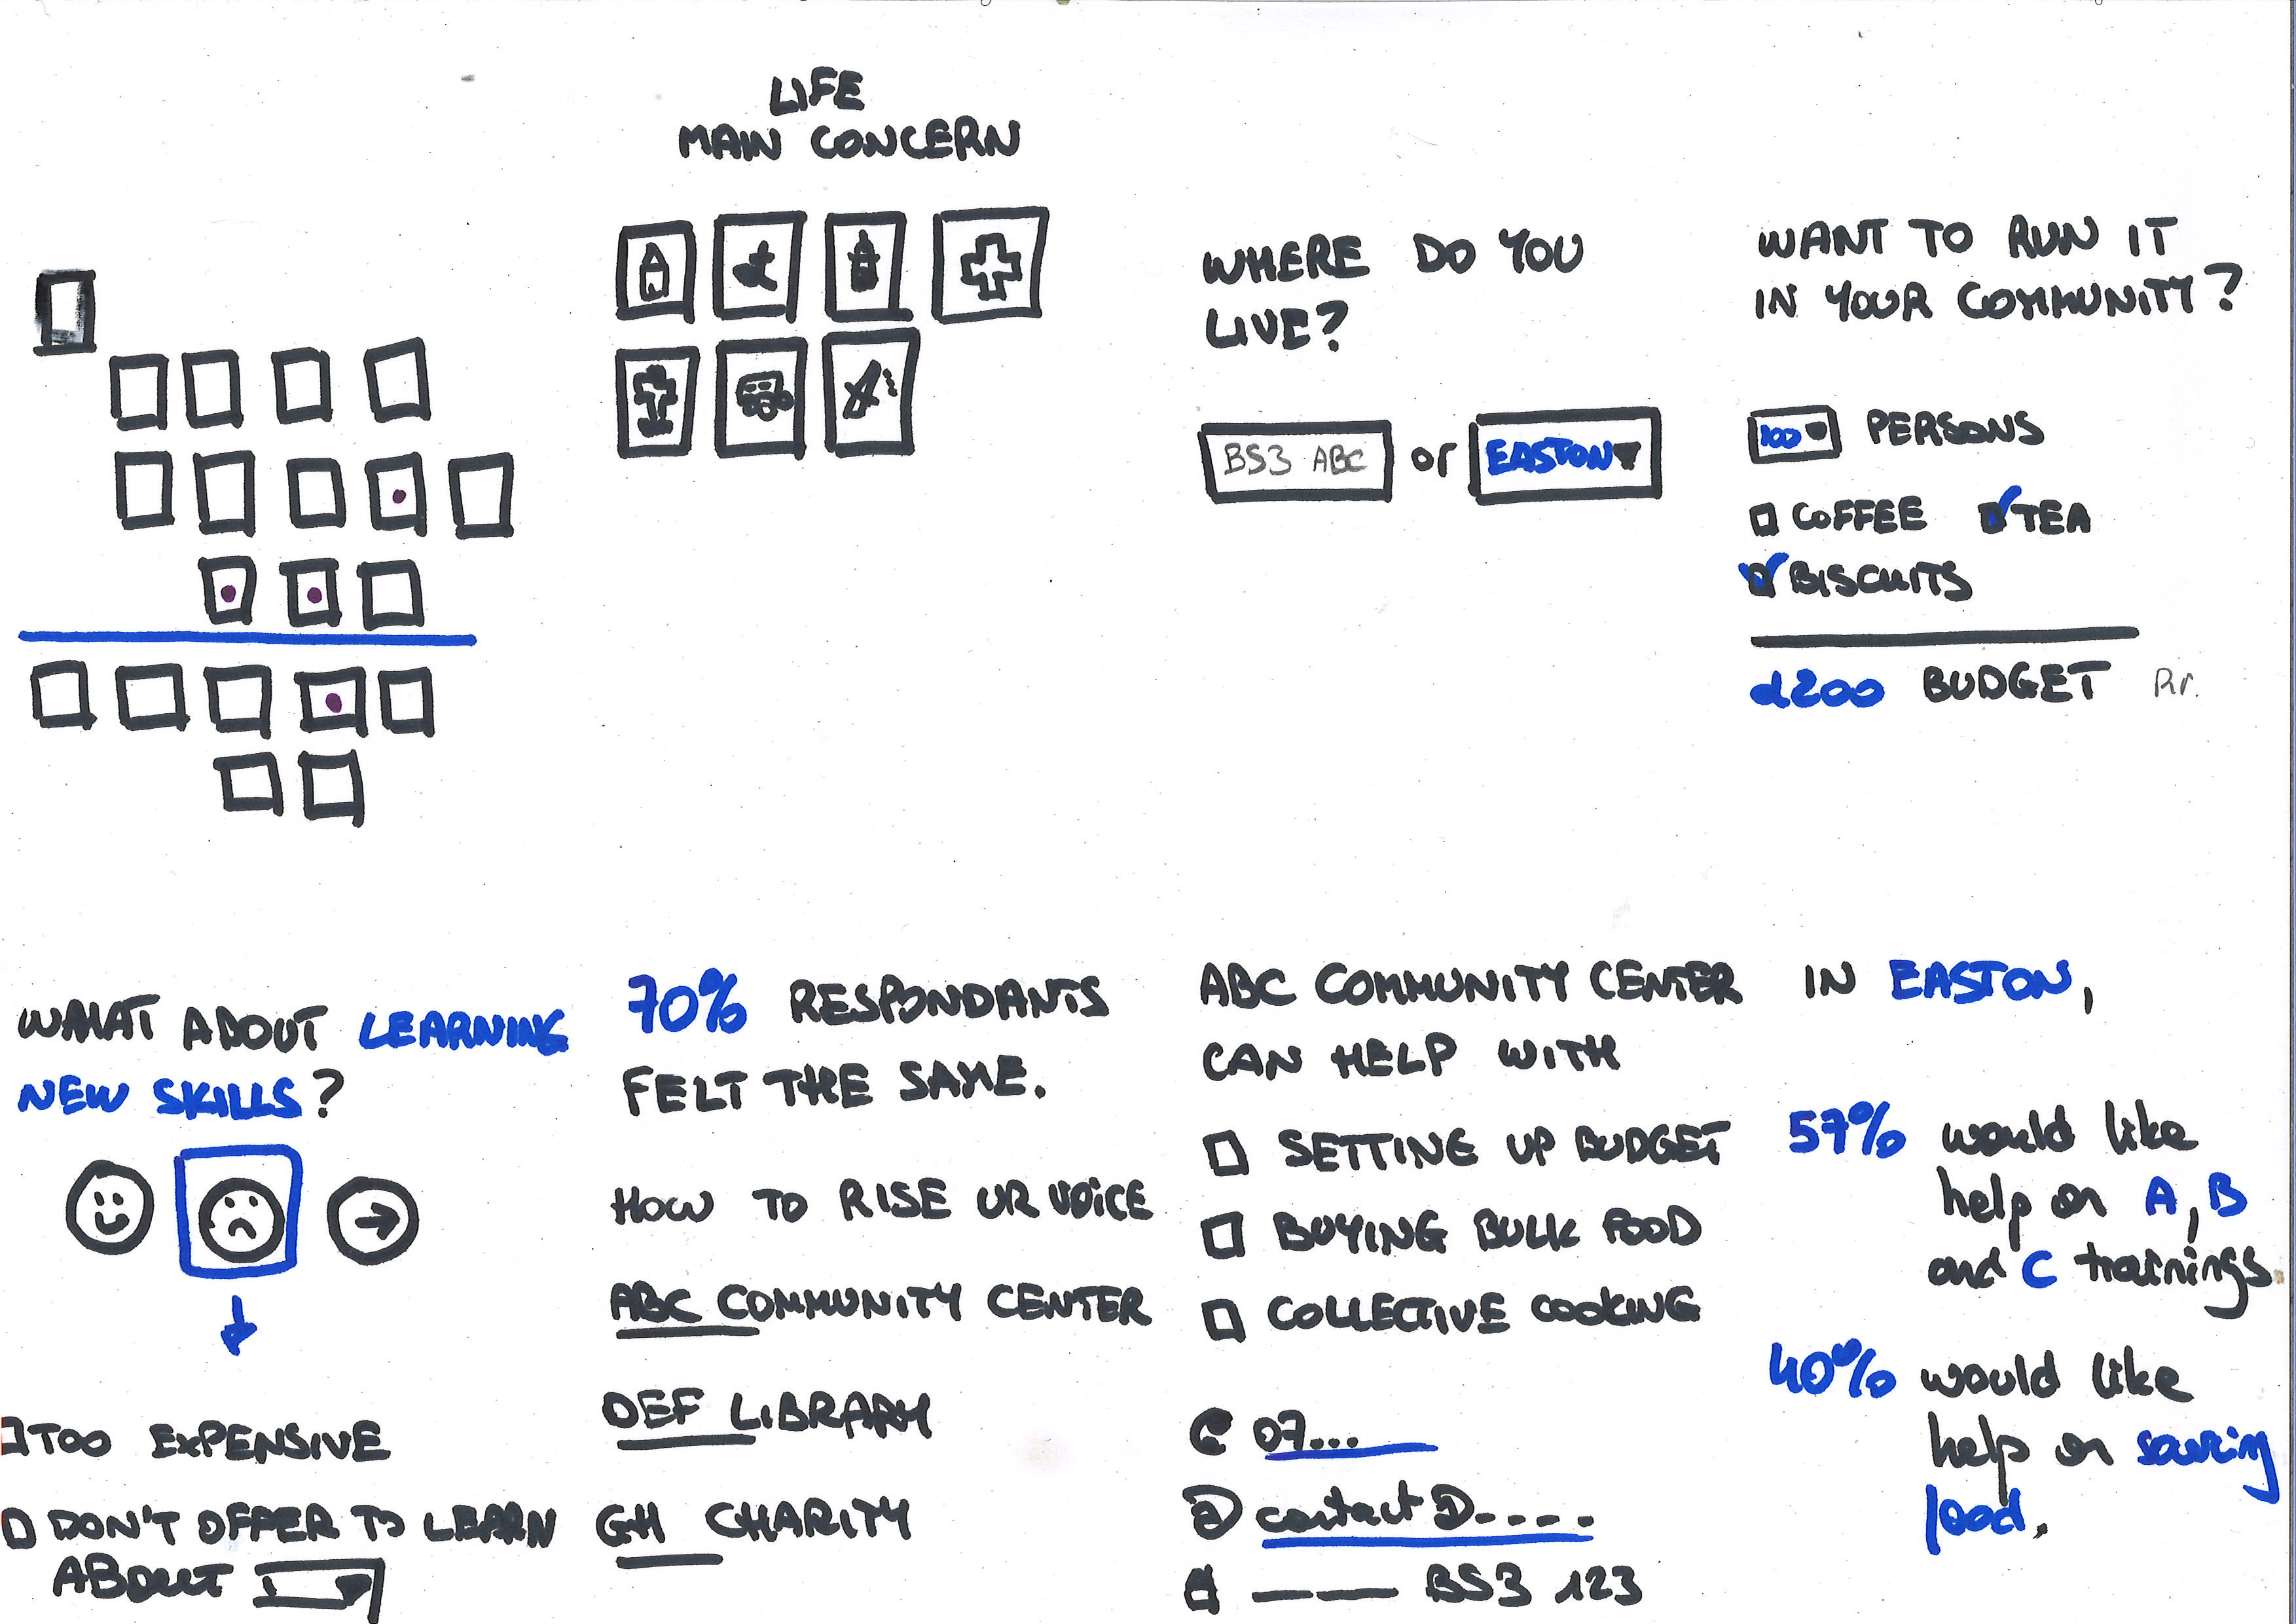 LIFE
MAIN CONCERN
WHERE DO YOU
LIVE?
BS3 ABC or EASTON
WANT TO RUN IT
IN YOUR COMMUNITY?
100 PERSONS
COFFEE TEA
BISCUITS
£200 BUDGET
WHAT ABOUT LEARNING
NEW SKILLS?
TOO EXPENSIVE
DON'T OFFER TO LEARN
ABOUT
70% RESPONDANTS
FELT THE SAME.
HOW TO RISE UR VOICE
ABC COMMUNITY CENTER
DEF LIBRARY
GH CHARITY
ABC COMMUNITY CENTER
CAN HELP WITH
SETTING UP BUDGET
BUYING BULK FOOD
COLLECTIVE COOKING
07...
@ contact @.....
BS3 123
IN EASTON,
57% would like
help on A, B
and C trainings
40% would like
help on
food.